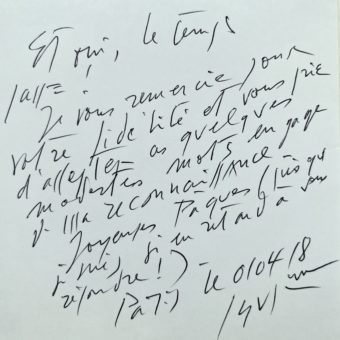 Et oui, le temps
passe !
Je vous remercie pour
votre fidélité et vous prie
d'accepter ces quelques
modestes mots en gage
d ma reconnaissance.
Joyeuses Pâques (
si en retard à vous
répondre !) -
Paris le 01 04 18